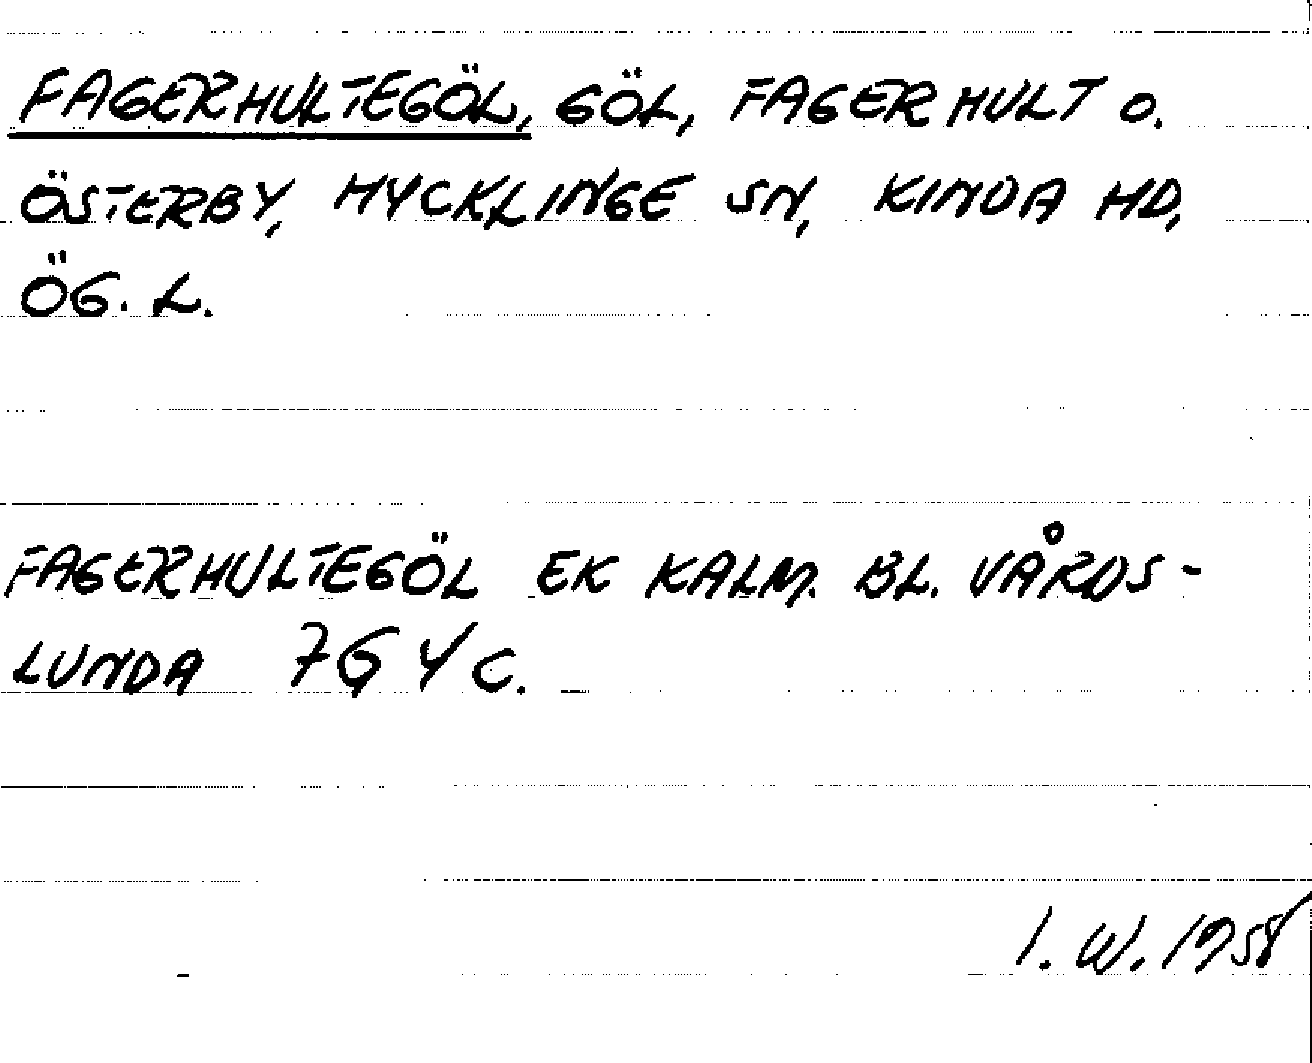 FAGERHULTEGÖL, GÖL, FAGERHULT O.
ÖSTERBY, HYCKLINGE SN, KINDA HD,
ÖG. L.
FAGERHULTEGÖL EK KALM. BL. VÅRDS-
LUNDA 7G Y C.
I. W. 1958